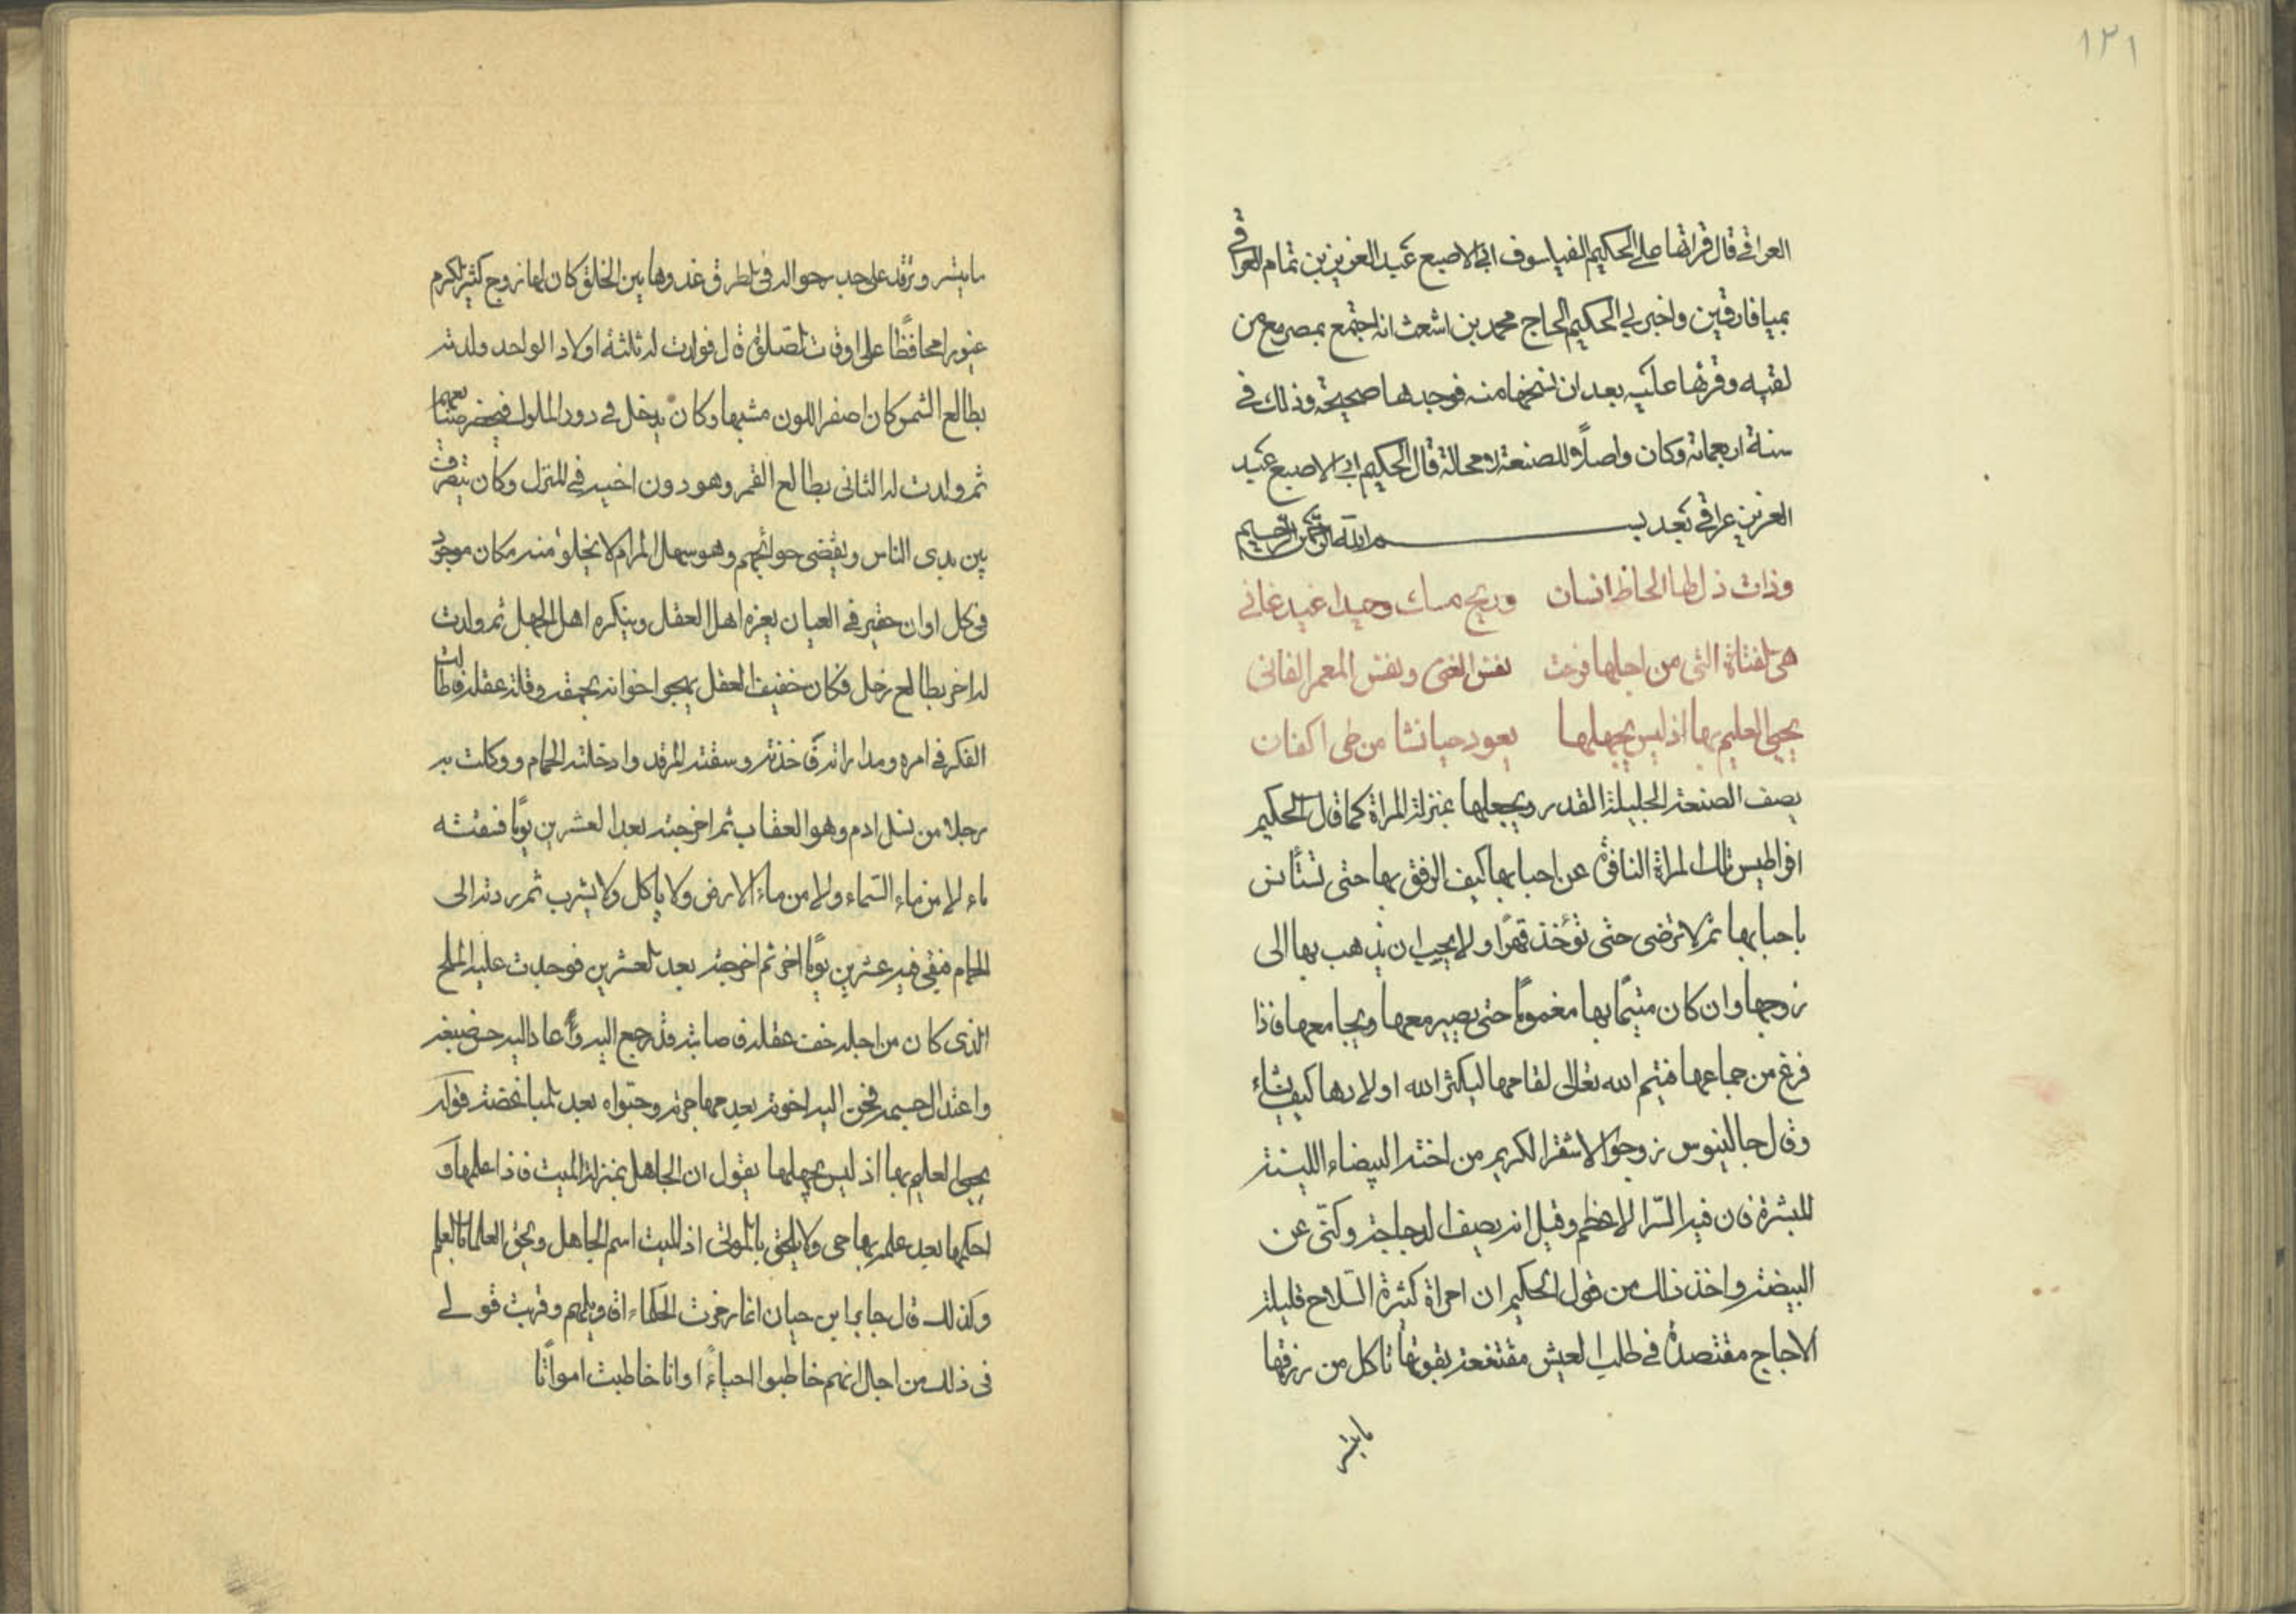 ١٢١
العراقي قال قراتها على الحكيم الفيلسوف ابي الاصبع عبد العزيز بن تمام العراقي
بميافارقين واخبرني الحكيم الحاج محمد بن اشعث انه اجتمع بمصر مع من
لقيه وقرئها عليه بعد ان نسخها منه فوجدها صحيحة وذلك في
سنة اربعمائة وكان واصلاً وللصنعة لا محالة قال الحكيم ابي الاصبع عبد
العزيز عراقي بعد بسم الله الرحمن الرحيم
وذات ذل لها الحاظ انسان وريح مسك وجيد اغيد غاني
هي الفتاة التي من اجلها فزعت نفس الغني ونفس المعمر الفاني
يحيى العليم بها اذ ليس يجهلها يعود حيا نشا من طى اكفان
يصف الصنعة الجليلة القدر ويجعلها بمنزلة المراة كما قال الحكيم
افراطيس تلك المراة النافرة عن احبابها كيف الرفق بها حتى تستأنس
باحبابها ثم لا ترضى حتى تؤخذ قهرًا ولا يجب ان يذهب بها الى
زوجها وان كان متيمًا بها مغمومًا حتى يصير معها ويجامعها فاذا
فرغ من جماعها فيتم الله تعالى لقاحها ليكثر الله اولادها كيف يشاء
وقال جالينوس زوجوا الاشقر الكريم من اخته البيضاء اللينة
للبشرة فان فيه السّر الاعظم وقيل انه يصف الدجاجة وكنّى عن
البيضة واخذ ذلك من قول الحكيم ان امراة كثيرة السّلاح قليلة
الاجاج مقتصدة في طلب العيش مقتنعة بقوتها تاكل من رزقها
مايتسر
مايتسر وترقد على جب سحواله في الطرق غدوها بين الخلق كان لها زوج كثير الكرم
غيورا محافظًا على اوقات الصلوة قال فولدت له ثلثة اولاد الواحد ولدته
بطالع الشمس كان اصفر اللون مشبها وكان يدخل في دور الملوك فيحضر
ثم ولدت له الثاني بطالع القمر وهو دون اخيه في المنزل وكان يتصرف
بين يدى الناس ويقضى حوائجهم وهو سهل المرام لا يخلو منه مكان موجود
في كل اوان حقير في العيان يعزه اهل العقل وينكره اهل الجهل ثم ولدت
له اخر بطالع زحل فكان خفيف العقل يهجو اخوانه بحمقه وقلة عقله فاطالت
الفكر في امره ومداراته فاخذته وسقته المرقد وادخلته الحمام ووكلت به
رجلا من نسل ادم وهو العقاب ثم اخرجته بعد العشرين يومًا فنفثه
ماء لا من ماء السّماء ولا من ماء الارض ولا ياكل ولا يشرب ثم ردته الى
الحمام فبقي فيه عشرين يومًا اخر ثم اخرجته بعد العشرين فوجدت عليه الملح
الذى كان من اجله خف عقله فصابته قد رجع اليه وأعاد اليه حسن صبغه
واعتدال جسمه فحن اليه اخوته بعد مهاجرته وحبّواه بعد المباغضة قوله
يحيى العليم بها اذ ليس يجهلها يقول ان الجاهل بمنزلة الميت فاذا علمها و
احكمها بعد علمه بها حى ولا يلحق بالموتى اذ الميت اسم الجاهل ويحيى العلما بالعلم
وكذلك قال جابر ابن حيان انما رمزت الحكماء اقاويلهم وقربت قولي
في ذلك من اجل انهم خاطبوا احياءً وانا خاطبت امواتًا